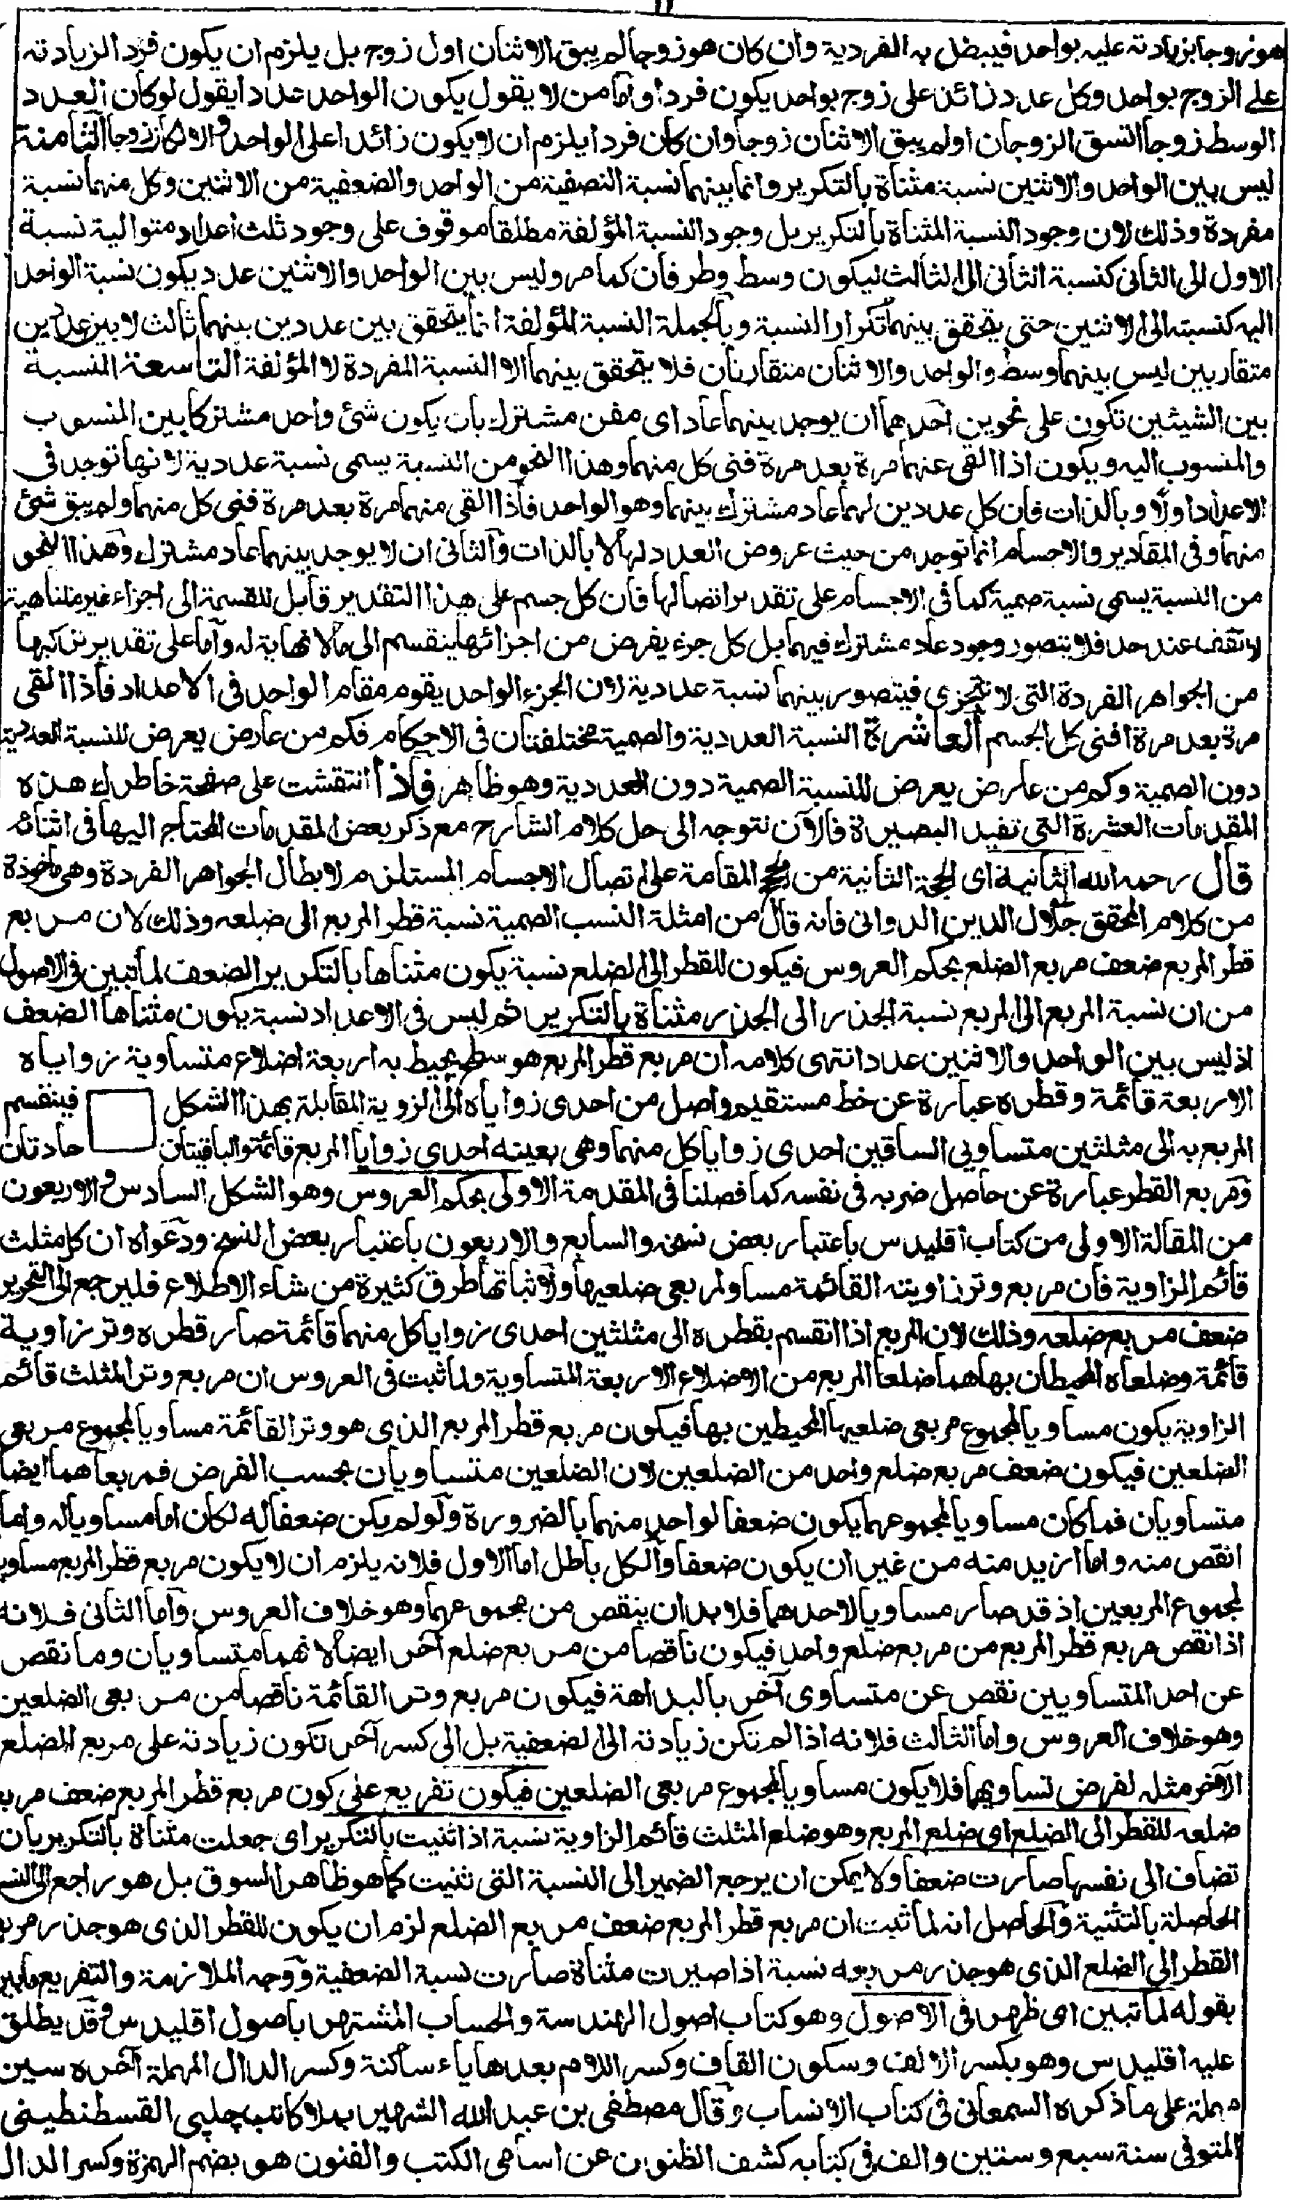 ١١
هو زوجا بزيادته عليه بواحد فيبطل به الفردية وان كان هو زوجا لم يبق الاثنان اول زوج بل يلزم ان يكون فردا لزيادته
على الزوج بواحد وكل عدد زائد على زوج بواحد يكون فردا واما من لا يقول بكون الواحد عددا يقول لو كان العدد
الوسط زوجا اتسق الزوجان او لم يبق الاثنان زوجا وان كان فردا يلزم ان لا يكون زائدا على الواحد والا لكان زوجا الثامنة
ليس بين الواحد والاثنين نسبة مثناة بالتكرير وانما بينهما نسبة النصفية من الواحد والضعفية من الاثنين وكل منهما نسبة
مفردة وذلك لان وجود النسبة المثناة بالتكرير بل وجود النسبة المؤلفة مطلقا موقوف على وجود ثلث اعداد متوالية نسبة
الاول الى الثاني كنسبة الثاني الى الثالث ليكون وسط وطرفان كما مر وليس بين الواحد والاثنين عدد يكون نسبة الواحد
اليه كنسبته الى الاثنين حتى يتحقق بينهما تكرار النسبة وبالجملة النسبة المؤلفة انما يتحقق بين عددين بينهما ثالث لا بين عددين
متقاربين ليس بينهما وسط والواحد والاثنان متقاربان فلا يتحقق بينهما الا النسبة المفردة لا المؤلفة التاسعة النسبة
بين الشيئين تكون على نحوين احدهما ان يوجد بينهما عاد اى مفن مشترك بان يكون شئ واحد مشتركا بين المنسوب
والمنسوب اليه ويكون اذا القى عنهما مرة بعد مرة فنى كل منهما وهذا النحو من النسبة يسمى نسبة عددية لانها توجد فى
الاعداد اولا وبالذات فان كل عددين لهما عاد مشترك بينهما وهو الواحد فاذا القى منهما مرة بعد مرة فنى كل منهما ولم يبق شئ
منهما وفى المقادير والاجسام انما توجد من حيث عروض العدد لها لا بالذات والثانى ان لا يوجد بينهما عاد مشترك وهذا النحو
من النسبة يسمى نسبة صمية كما فى الاجسام على تقدير اتصالها فان كل جسم على هذا التقدير قابل للقسمة الى اجزاء غير متناهية
لا تقف عند حد فلا يتصور وجود عاد مشترك فيهما بل كل جزء يفرض من اجزائها ينقسم الى ما لا نهاية له واما على تقدير تركبها
من الجواهر الفردة التى لا تتجزى فيتصور بينهما نسبة عددية لان الجزء الواحد يقوم مقام الواحد فى الاعداد فاذا القى
مرة بعد مرة افنى كل الجسم العاشرة النسبة العددية والصمية مختلفتان فى الاحكام فكم من عارض يعرض للنسبة العددية
دون الصمية وكم من عارض يعرض للنسبة الصمية دون العددية وهو ظاهر فاذا انتقشت على صفحة خاطرك هذه
المقدمات العشرة التى تفيد البصيرة فالآن نتوجه الى حل كلام الشارح مع ذكر بعض المقدمات المحتاج اليها فى اثنائه
قال رحمه الله الثانية اى الحجة الثانية من الحجج المقامة على اتصال الاجسام المستلزم لابطال الجواهر الفردة وهى ماخوذة
من كلام المحقق جلال الدين الدوانى فانه قال من امثلة النسب الصمية نسبة قطر المربع الى ضلعه وذلك لان مربع
قطر المربع ضعف مربع الضلع بحكم العروس فيكون للقطر الى الضلع نسبة يكون مثناها بالتكرير الضعف لما تبين فى الاصول
من ان نسبة المربع الى المربع نسبة الجذر الى الجذر مثناة بالتكرير ثم ليس فى الاعداد نسبة يكون مثناها الضعف
اذ ليس بين الواحد والاثنين عدد انتهى كلامه ان مربع قطر المربع هو سطح يحيط به اربعة اضلاع متساوية زواياه
الاربعة قائمة وقطره عبارة عن خط مستقيم واصل من احدى زواياه الى الزوية المقابلة بهذا الشكل فينقسم
المربع به الى مثلثين متساويى الساقين احدى زوايا كل منهما وهى بعينه احدى زوايا المربع قائمة والباقيتان حادتان
ومربع القطر عبارة عن حاصل ضربه فى نفسه كما فصلنا فى المقدمة الاولى بحكم العروس وهو الشكل السادس والاربعون
من المقالة الاولى من كتاب اقليدس باعتبار بعض نسخه والسابع والاربعون باعتبار بعض النسخ ودعواه ان كل مثلث
قائم الزاوية فان مربع وتر زاويته القائمة مساو لمربعى ضلعيها ولاثباتها طرق كثيرة من شاء الاطلاع فليرجع الى التحرير
ضعف مربع ضلعه وذلك لان المربع اذا انقسم بقطره الى مثلثين احدى زوايا كل منهما قائمة صار قطره وتر زاوية
قائمة وضلعاه المحيطان بها هما ضلعا المربع من الاضلاع الاربعة المتساوية ولما ثبت فى العروس ان مربع وتر المثلث قائم
الزاوية يكون مساويا لمجموع مربعى ضلعيها المحيطين بها فيكون مربع قطر المربع الذى هو وتر القائمة مساويا لمجموع مربعى
الضلعين فيكون ضعف مربع ضلع واحد من الضلعين لان الضلعين متساويان بحسب الفرض فمربعاهما ايضا
متساويان فما كان مساويا لمجموعهما يكون ضعفا لواحد منهما بالضرورة ولو لم يكن ضعفا له لكان اما مساويا له واما
انقص منه واما ازيد منه من غير ان يكون ضعفا والكل باطل اما الاول فلانه يلزم ان لا يكون مربع قطر المربع مساويا
لمجموع المربعين اذ قد صار مساويا لاحدهما فلا بد ان ينقص من مجموعهما وهو خلاف العروس واما الثانى فلانه
اذا نقص مربع قطر المربع من مربع ضلع واحد فيكون ناقصا من مربع ضلع آخر ايضا لانهما متساويان وما نقص
عن احد المتساويين نقص عن متساوى آخر بالبداهة فيكون مربع وتر القائمة ناقصا من مربعى الضلعين
وهو خلاف العروس واما الثالث فلانه اذا لم تكن زيادته الى الضعفية بل الى كسر آخر تكون زيادته على مربع الضلع
الآخر مثله لفرض تساويهما فلا يكون مساويا لمجموع مربعى الضلعين فيكون تفريع على كون مربع قطر المربع ضعف مربع
ضلعه للقطر الى الضلع اى ضلع المربع وهو ضلع المثلث قائم الزاوية نسبة اذا ثنيت بالتكرير اى جعلت مثناة بالتكرير بان
تضاف الى نفسها صارت ضعفا ولا يمكن ان يرجع الضمير الى النسبة التى ثنيت كما هو ظاهر السوق بل هو راجع الى النسبة
الحاصلة بالتثنية والحاصل انه لما ثبت ان مربع قطر المربع ضعف مربع الضلع لزم ان يكون للقطر الذى هو جذر مربع
القطر الى الضلع الذى هو جذر مربعه نسبة اذا صيرت مثناة صارت نسبة الضعفية ووجه الملازمة والتفريع ما بين
بقوله لما تبين اى ظهر فى الاصول وهو كتاب اصول الهندسة والحساب المشتهر باصول اقليدس وقد يطلق
عليه اقليدس وهو بكسر الالف وسكون القاف وكسر اللام بعدها ياء ساكنة وكسر الدال المهملة آخره سين
مهملة على ما ذكره السمعانى فى كتاب الانساب وقال مصطفى بن عبد الله الشهير بملا كاتب چلپى القسطنطينى
المتوفى سنة سبع وستين والف فى كتابه كشف الظنون عن اسامى الكتب والفنون هو بضم الهمزة وكسر الدال